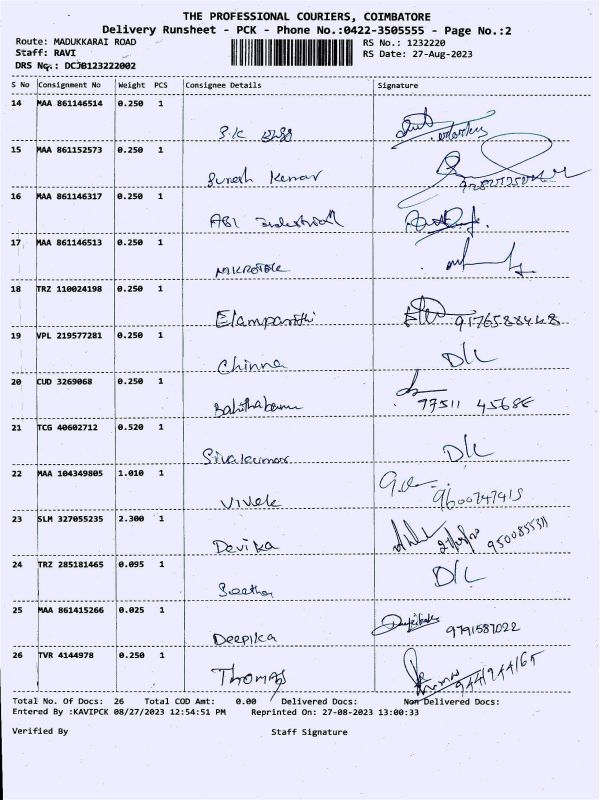 THE PROFESSIONAL COURIERS, COIMBATORE
Delivery Runsheet - PCK - Phone No.:0422-3505555 - Page No.:2
Route: MADUKKARAI ROAD RS No.: 1232220
Staff: RAVI RS Date: 27-Aug-2023
DRS No.: DCJB123222002
S No Consignment No Weight PCS Consignee Details Signature
14 MAA 861146514 0.250 1
S.K
15 MAA 861152573 0.250 1
Suresh Kumar
16 MAA 861146317 0.250 1
ABI industrial
17 MAA 861146513 0.250 1
MICROTOLE
18 TRZ 110024198 0.250 1
Elamparithi 9176588448
19 VPL 219577281 0.250 1
Chinna D/L
20 CUD 3269068 0.250 1
77511 45688
21 TCG 40602712 0.520 1
Sivakumar D/L
22 MAA 104349805 1.010 1
Vivek 9600747415
23 SLM 327055235 2.300 1
Devika
24 TRZ 285181465 0.095 1
Seetha D/L
25 MAA 861415266 0.025 1
Deepika 9791587022
26 TVR 4144978 0.250 1
Thomas 9441944165
Total No. Of Docs: 26 Total COD Amt: 0.00 Delivered Docs: Non Delivered Docs:
Entered By :KAVIPCK 08/27/2023 12:54:51 PM Reprinted On: 27-08-2023 13:00:33
Verified By Staff Signature